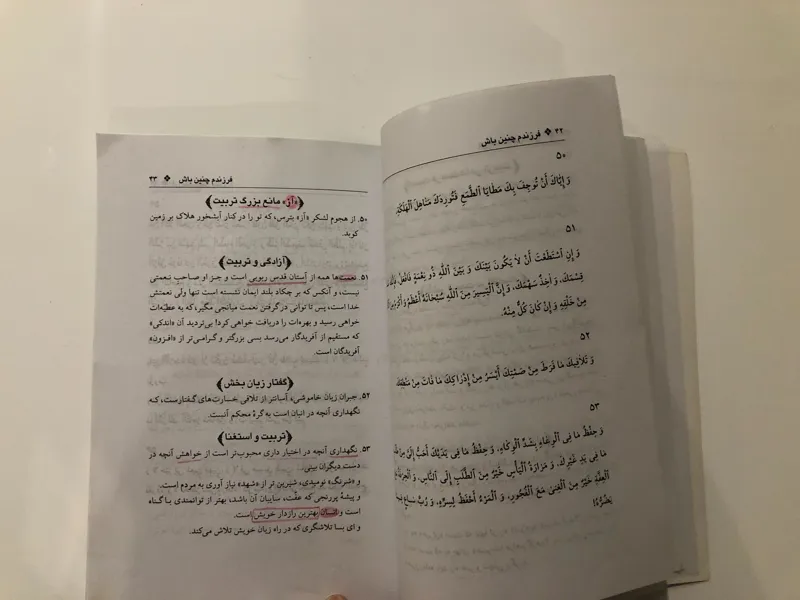 ۴۲ ❖ فرزندم چنین باش
۵۰
وَ إِيَّاكَ أَنْ تُوجِفَ بِكَ مَطَايَا ٱلطَّمَعِ فَتُورِدَكَ مَنَاهِلَ ٱلْهَلَكَةِ.
۵۱
وَ إِنِ ٱسْتَطَعْتَ أَنْ لَا يَكُونَ بَيْنَكَ وَ بَيْنَ ٱللَّهِ ذُو نِعْمَةٍ فَافْعَلْ
قِسْمَكَ، وَ آخِذٌ سَهْمَكَ، وَ إِنَّ ٱلْيَسِيرَ مِنَ ٱللَّهِ سُبْحَانَهُ أَعْظَمُ وَ أَكْرَمُ مِنَ
مِنْ خَلْقِهِ وَ إِنْ كَانَ كُلٌّ مِنْهُ.
۵۲
وَ تَلَافِيكَ مَا فَرَطَ مِنْ صَمْتِكَ أَيْسَرُ مِنْ إِدْرَاكِكَ مَا فَاتَ مِنْ مَنْطِقِكَ
۵۳
وَ حِفْظُ مَا فِى ٱلْوِعَاءِ بِشَدِّ ٱلْوِكَاءِ، وَ حِفْظُ مَا فِى يَدَيْكَ أَحَبُّ إِلَىَّ مِنْ
مَا فِى يَدِ غَيْرِكَ. وَ مَرَارَةُ ٱلْيَأْسِ خَيْرٌ مِنَ ٱلطَّلَبِ إِلَى ٱلنَّاسِ، وَ ٱلْحِرْفَةُ
ٱلْعِفَّةِ خَيْرٌ مِنَ ٱلْغِنَىٰ مَعَ ٱلْفُجُورِ، وَ ٱلْمَرْءُ أَحْفَظُ لِسِرِّهِ، وَ رُبَّ سَاعٍ فِيمَا
يَضُرُّهُ!
فرزندم چنین باش ❖ ۴۳
«آز» مانع بزرگ تربیت
۵۰. از هجوم لشکر «آز» بترس، که تو را در کنار آبشخور هلاک بر زمین
کوبد.
آزادگی و تربیت
۵۱. نعمت‌ها همه از آستان قدس ربوبی است و جز او صاحب نعمتی
نیست، و آنکس که بر چکاد بلند ایمان نشسته است تنها ولّی نعمتش
خدا است، پس تا توانی در گرفتن نعمت میانجی مگیر، که به عطیّه‌ات
خواهی رسید و بهره‌ات را دریافت خواهی کرد! بی‌تردید آن «اندکی»
که مستقیم از آفریدگار می‌رسد بسی بزرگتر و گرامی‌تر از «افزون»
آفریدگان است.
گفتار زیان بخش
۵۲. جبران زیان خاموشی، آسانتر از تلافی خسارت‌های گفتارست، که
نگهداری آنچه در انبان است به گرهٔ محکم آنست.
تربیت و استغنا
۵۳. نگهداری آنچه در اختیار داری محبوب‌تر است از خواهش آنچه در
دست دیگران بینی.
و «شرنگ» نومیدی، شیرین تر از «شهد» نیاز آوری به مردم است.
و پیشهٔ پررنجی که عفّت، سایبان آن باشد، بهتر از توانمندی با گناه
است و انسان بهترین رازدار خویش است.
و ای بسا تلاشگری که در راه زیان خویش تلاش می‌کند.